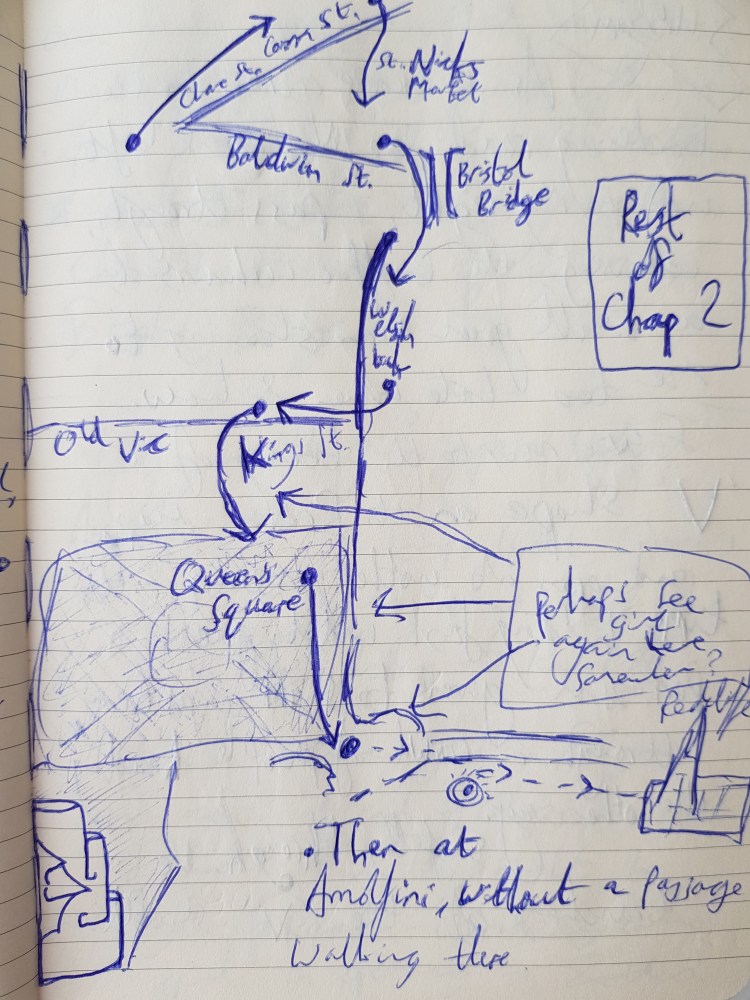 Corn St.
Clare St.
St. Nicks
Market
Baldwin St.
Bristol
Bridge
Rest
of
Chap 2
Welsh
back
Old Vic
Kings St.
Queens
Square
Perhaps see
girl
again here
Redcliffe
• Then at
Arnolfini, without a passage
walking there